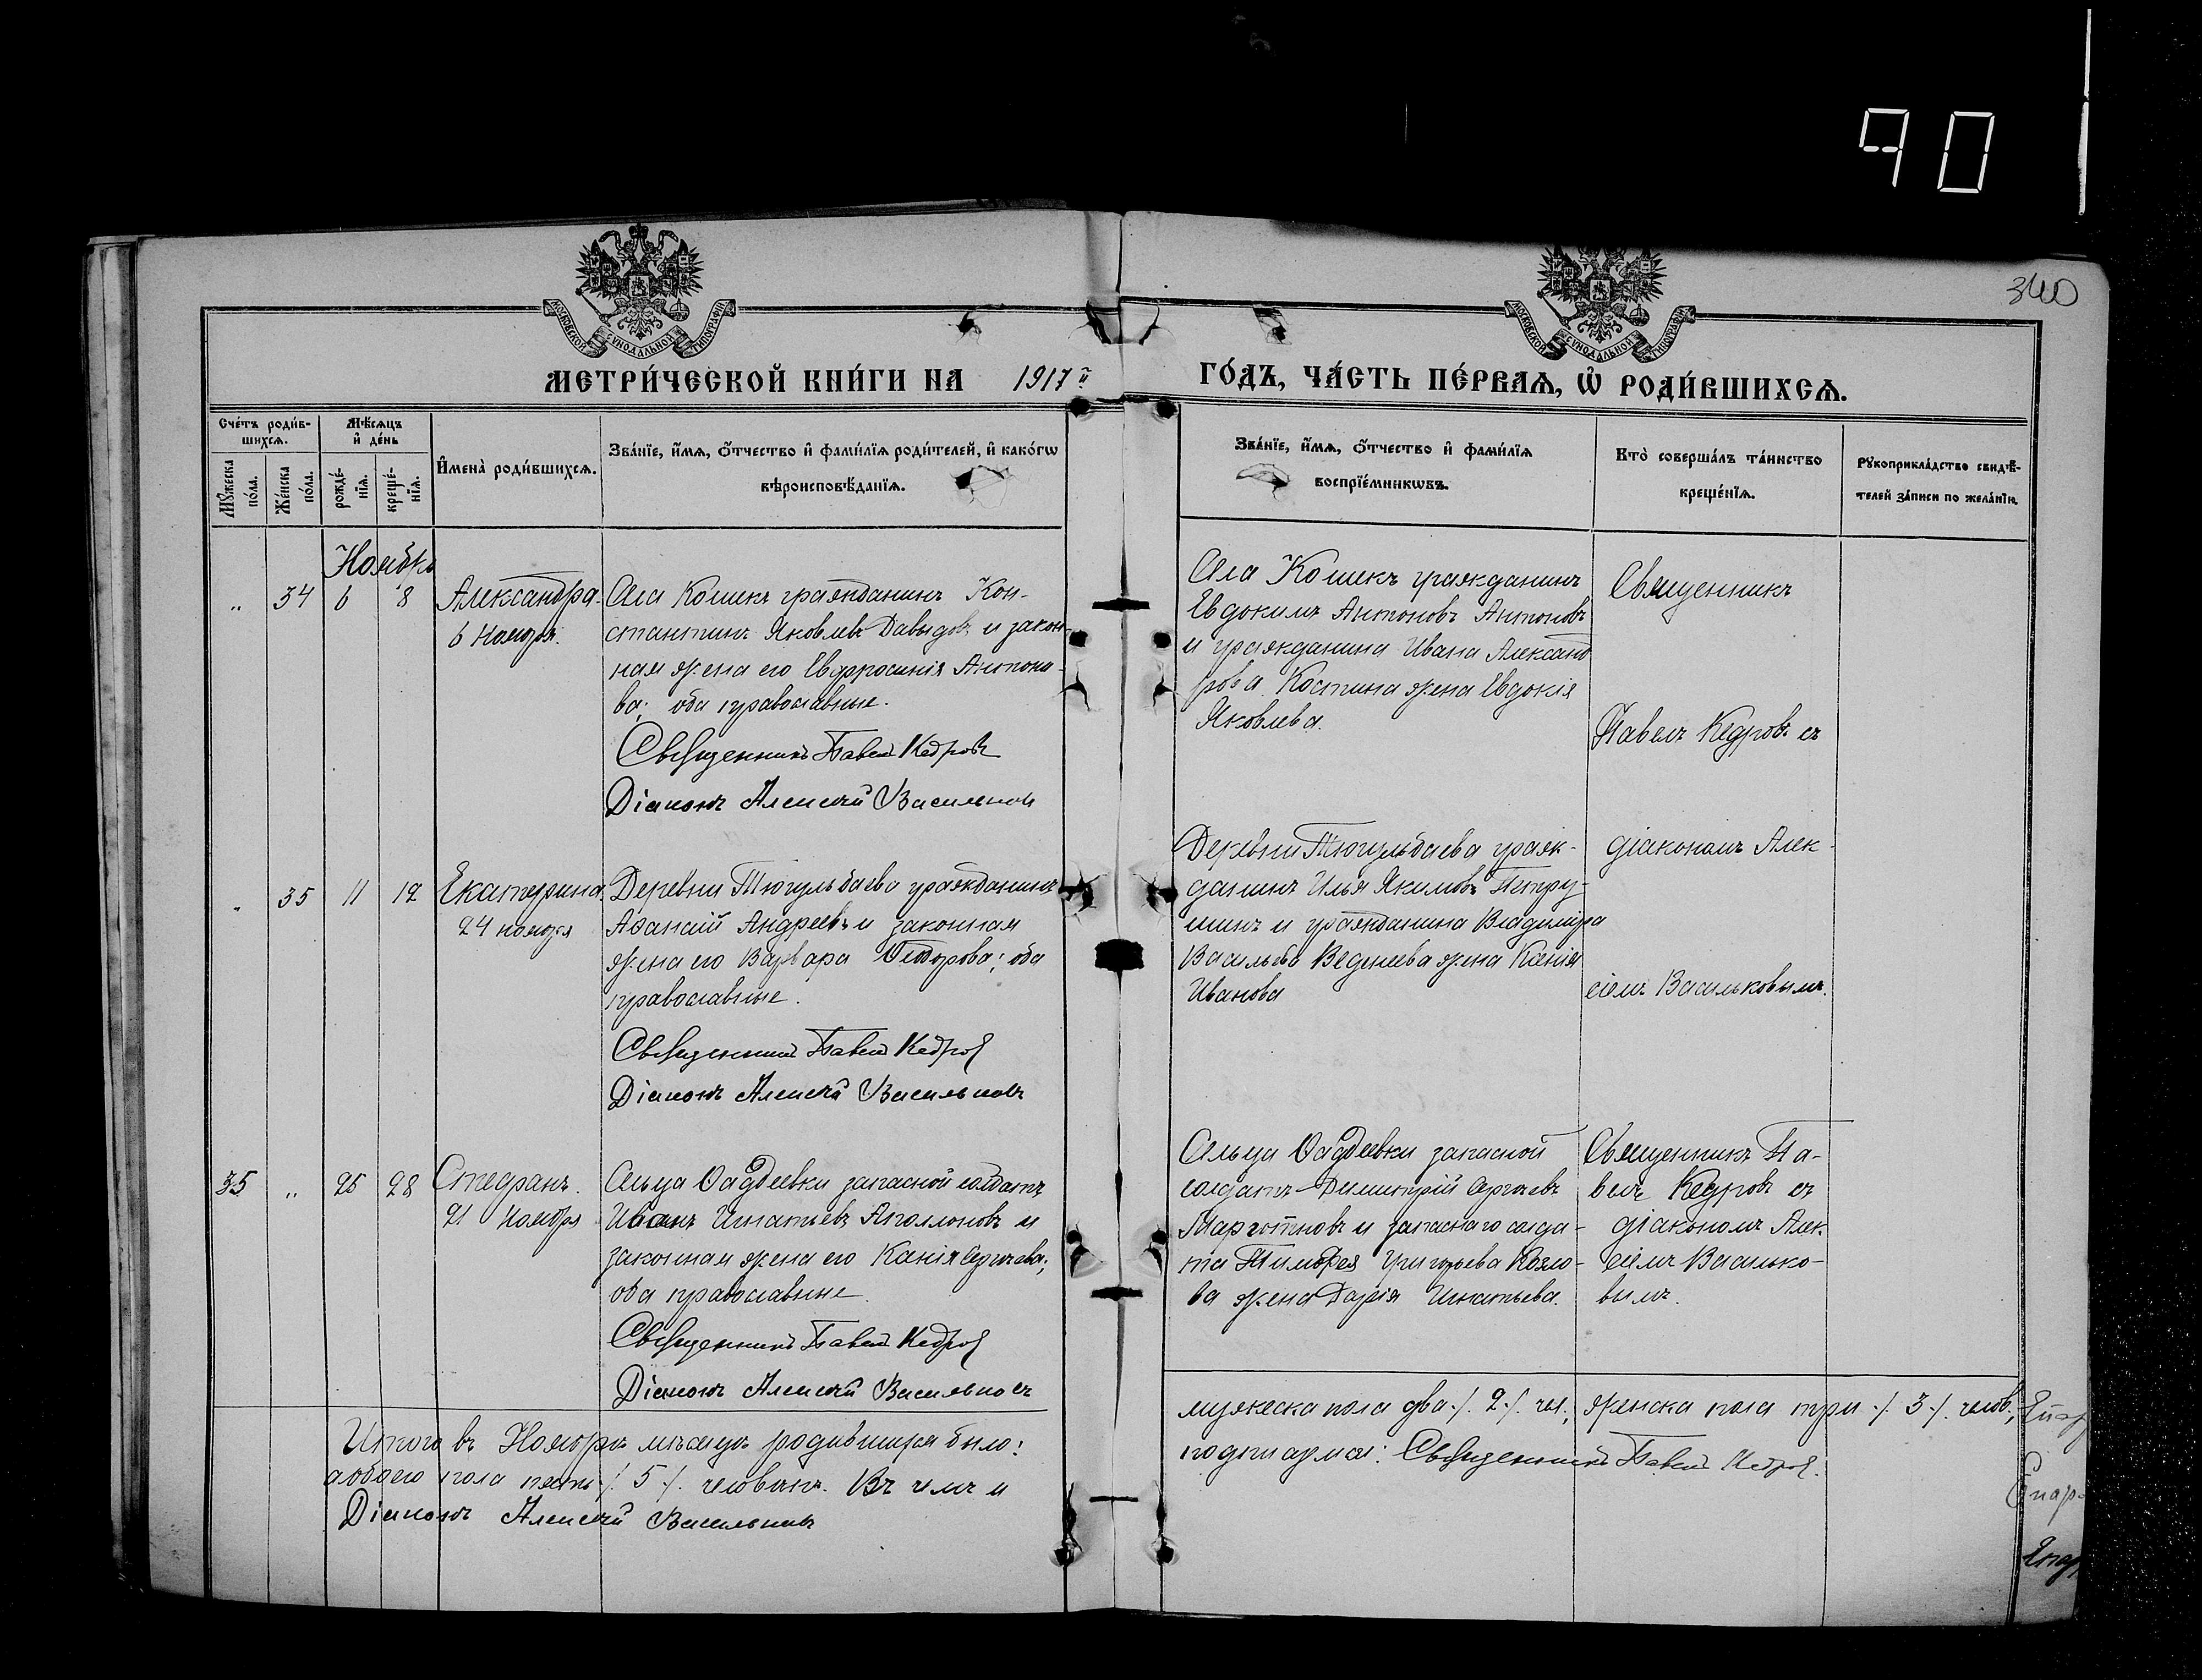 90
340
МОСКОВСКОЙ СУНОДАЛЬНОЙ ТИПОГРАФІИ
МОСКОВСКОЙ СУНОДАЛЬНОЙ ТИПОГРАФІИ
МЕТРИ́ЧЕСКОЙ КНИ́ГИ НА 1917 й
ГО́ДЪ, ЧА́СТЬ ПЕ́РВАѦ, Ѡ҆ РОДИ́ВШИХСѦ.
Сче́тъ роди́в-
шихсѧ.
Мѣ́сѧцъ
и҆ де́нь
Мꙋ́жеска
по́ла.
Же́нска
по́ла.
рожде́-
нїѧ.
креще́-
нїѧ.
И҆мена̀ роди́вшихсѧ.
Зва́нїе, и҆́мѧ, ѻ҆́тчество и҆ фами́лїѧ роди́телей, и҆ како́гѡ
вѣроисповѣ́данїѧ.
Зва́нїе, и҆́мѧ, ѻ҆́тчество и҆ фами́лїѧ
воспрїе́мникѡвъ.
Кто̀ соверша́лъ та́инство
креще́нїѧ.
Рꙋкоприкла́дство свидѣ́-
телей за́писи по жела́нїю.
Ноябрь
„ 34 6 8 Александра
6 Ноября.
Села Кошекъ гражданинъ Кон-
стантинъ Яковлевъ Давыдовъ и закон-
ная жена его Евфросинія Антоно-
ва; оба православные.
Священникъ Павелъ Кедровъ
Діаконъ Алексѣй Васильковъ
Села Кошекъ гражданинъ
Евдокимъ Антоновъ Антоновъ
и гражданина Ивана Александ
рова Костина жена Евдокія
Яковлева.
Священникъ
Павелъ Кедровъ съ
„ 35 11 12 Екатерина
24 ноября
Деревни Тюгульбаева гражданинъ
Аѳанасій Андреевъ и законная
жена его Варвара Ѳеодорова; оба
православные.
Священникъ Павелъ Кедровъ
Діаконъ Алексѣй Васильковъ
Деревни Тюгульбаева граж-
данинъ Илья Якимовъ Петру-
шинъ и гражданина Владиміра
Васильева Веденеева жена Ксенія
Иванова
діакономъ Алек-
сіемъ Васильковымъ.
35 „ 25 28 Стефанъ.
21 Ноября
Сельца Ѳаддеевки запасной солдатъ
Иванъ Игнатьевъ Аполлоновъ и
законная жена его Ксенія Сергѣева;
оба православные.
Священникъ Павелъ Кедровъ
Діаконъ Алексѣй Васильковъ
Сельца Ѳаддеевки запасной
солдатъ Димитрій Сергѣевъ
и запаснаго солда-
та Тимофея Григорьева
ва жена Дарія Игнатьева.
Священникъ Па-
велъ Кедровъ съ
діакономъ Алек-
сіемъ Василько-
вымъ.
Итого въ Ноябрѣ мѣсяцѣ родившихся было:
обоего пола пять /. 5 /. человѣкъ. Въ чемъ и
Діаконъ Алексѣй Васильковъ
мужеска пола два /. 2 /. чел., женска пола три /. 3 /. челов.,
подписуемся: Священникъ Павелъ Кедровъ.